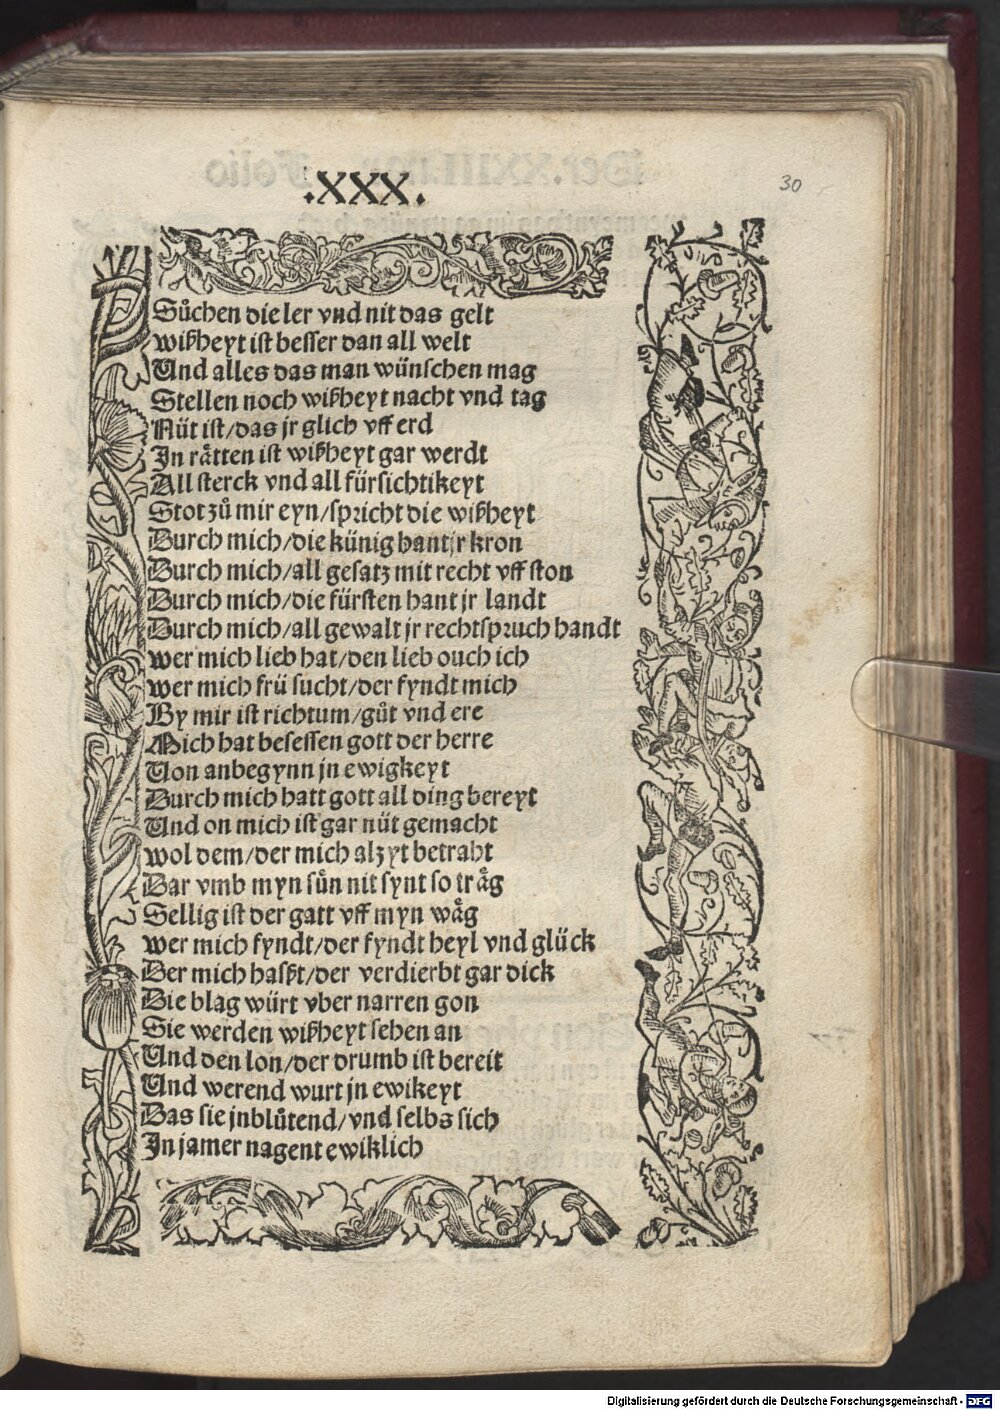 .XXX.
30
Suͦchen die ler vnd nit das gelt
wißheyt ist besser dan all welt
Und alles das man wünschen mag
Stellen noch wißheyt nacht vnd tag
Nüt ist/das jr glich vff erd
In raͤtten ist wißheyt gar werdt
All sterck vnd all fürsichtikeyt
Stot zuͦ mir eyn/spricht die wißheyt
Durch mich/die künig hant jr kron
Durch mich/all gesatz mit recht vff ston
Durch mich/die fürsten hant jr landt
Durch mich/all gewalt jr rechtspruch handt
wer mich lieb hat/den lieb ouch ich
wer mich frü sucht/der fyndt mich
By mir ist richtum/guͦt vnd ere
Mich hat besessen gott der herre
Von anbegynn jn ewigkeyt
Durch mich hatt gott all ding bereyt
Und on mich ist gar nüt gemacht
wol dem/der mich alzyt betraht
Dar vmb myn suͤn nit synt so traͤg
Sellig ist der gatt vff myn waͤg
wer mich fyndt/der fyndt heyl vnd glück
Der mich haßt/der verdierbt gar dick
Die blag würt vber narren gon
Sie werden wißheyt sehen an
Und den lon/der drumb ist bereit
Und werend wurt jn ewikeyt
Das sie jnbluͤtend/vnd selbs sich
In jamer nagent ewiklich
Digitalisierung gefördert durch die Deutsche Forschungsgemeinschaft - DFG